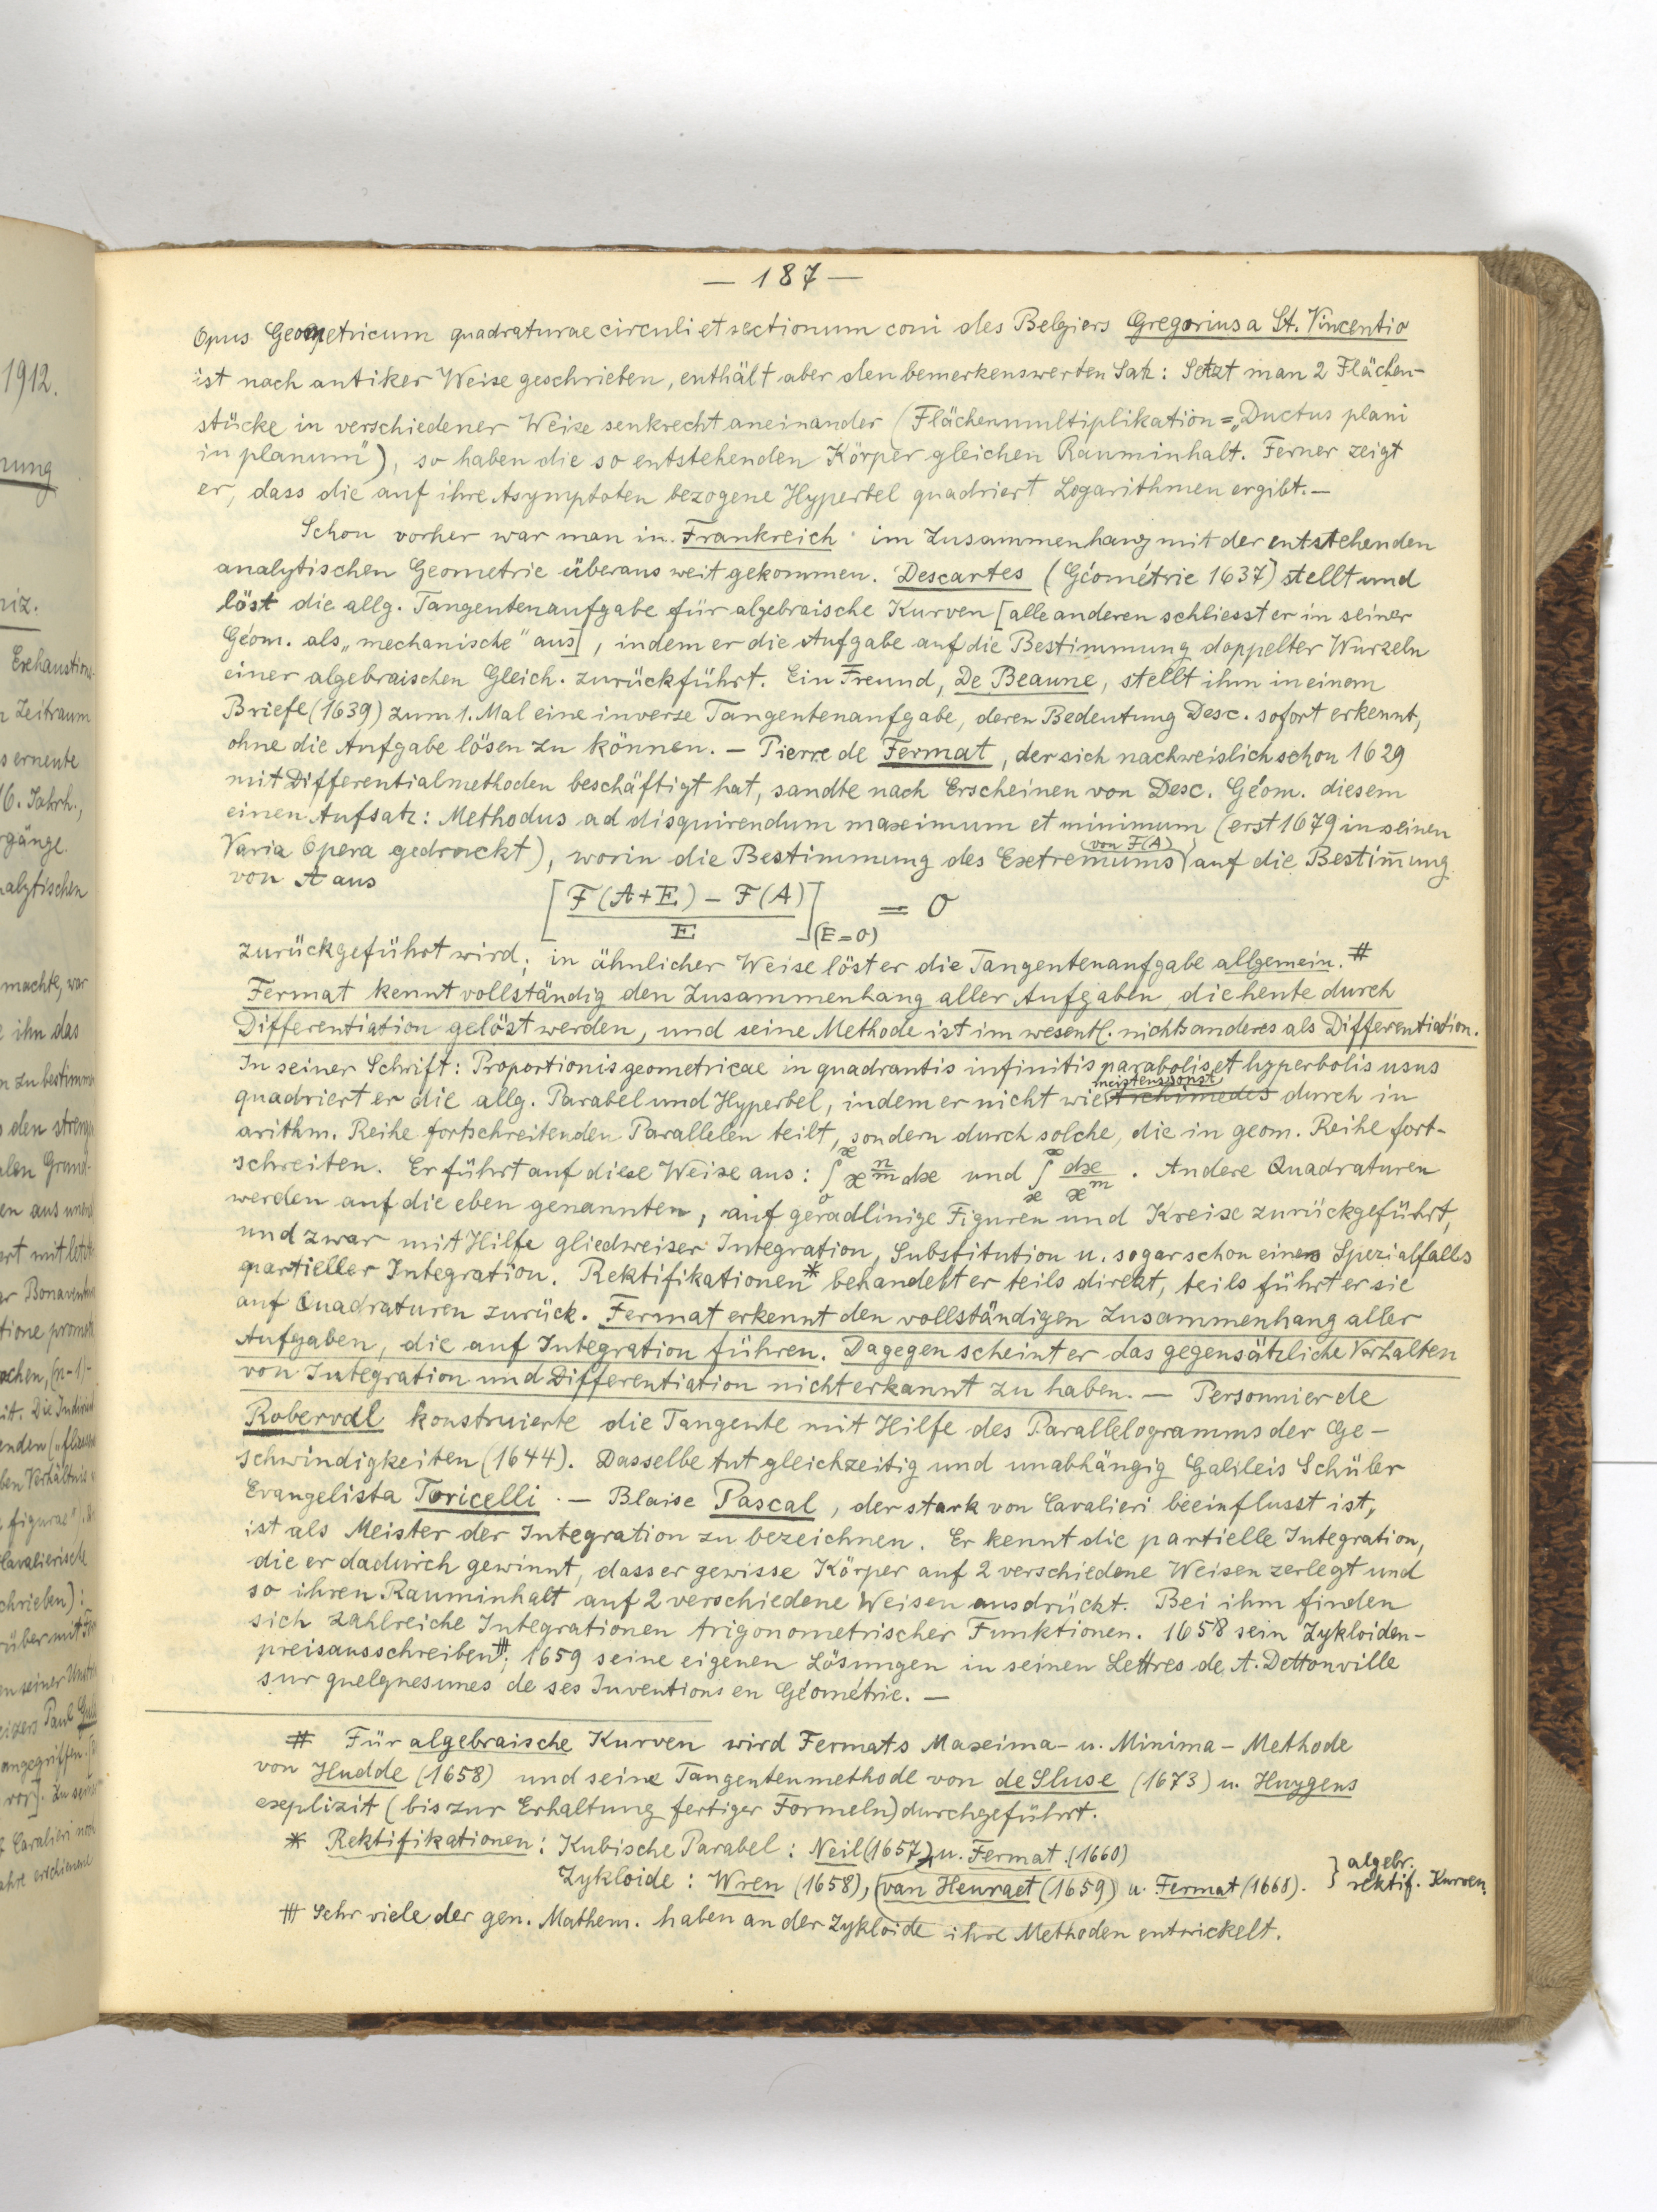 1912.
nung
niz.
Exhaustions-
Zeitraum
s erneute
16. Jahrh.,
rgänge.
nalytischen
machte, war
ihn das
n zu bestimm
den streng
len Grund-
en aus
ert mit
Bonavent
tione
ochen, (n-1)-
it. Die Indivi
enden („fl
ben Verhältnis
figurae").
Cavalierische
chrieben):
über mit
n seiner
eizers Paul Guld
angegriffen.
vor]. Zu sein
Cavalieri noch
ahre erschienene
— 187 —
Opus Geometricum quadraturae circuli et sectionum coni des Belgiers Gregorius a St. Vincentio
ist nach antiker Weise geschrieben, enthält aber den bemerkenswerten Satz: Setzt man 2 Flächen-
stücke in verschiedener Weise senkrecht aneinander (Flächenmultiplikation = „Ductus plani
in planum"), so haben die so entstehenden Körper gleichen Rauminhalt. Ferner zeigt
er, dass die auf ihre Asymptoten bezogene Hyperbel quadriert Logarithmen ergibt. —
Schon vorher war man in Frankreich im Zusammenhang mit der entstehenden
analytischen Geometrie überaus weit gekommen. Descartes (Géométrie 1637) stellt und
löst die allg. Tangentenaufgabe für algebraische Kurven [alle anderen schliesst er in seiner
Géom. als „mechanische" aus], indem er die Aufgabe auf die Bestimmung doppelter Wurzeln
einer algebraischen Gleich. zurückführt. Ein Freund, De Beaune, stellt ihm in einem
Briefe (1639) zum 1. Mal eine inverse Tangentenaufgabe, deren Bedeutung Desc. sofort erkennt,
ohne die Aufgabe lösen zu können. — Pierre de Fermat, der sich nachweislich schon 1629
mit Differentialmethoden beschäftigt hat, sandte nach Erscheinen von Desc. Géom. diesem
einen Aufsatz: Methodus ad disquirendum maximum et minimum (erst 1679 in seinen
Varia Opera gedruckt), worin die Bestimmung des Extremums (von F(A)) auf die Bestim̄ung
von A aus
[ (F(A+E) – F(A)) / E ](E=0) = 0
zurückgeführt wird; in ähnlicher Weise löst er die Tangentenaufgabe allgemein. #
Fermat kennt vollständig den Zusammenhang aller Aufgaben, die heute durch
Differentiation gelöst werden, und seine Methode ist im wesentl. nichts anderes als Differentiation.
In seiner Schrift: Proportionis geometricae in quadrantis infinitis parabolis et hyperbolis usus
quadriert er die allg. Parabel und Hyperbel, indem er nicht wie meistens sonst Archimedes durch in
arithm. Reihe fortschreitenden Parallelen teilt, sondern durch solche, die in geom. Reihe fort-
schreiten. Er führt auf diese Weise aus: ∫₀ˣ x^(n/m) dx und ∫ₓ^∞ dx/x^m. Andere Quadraturen
werden auf die eben genannten, auf geradlinige Figuren und Kreise zurückgeführt,
und zwar mit Hilfe gliedweiser Integration, Substitution u. sogar schon eines Spezialfalls
partieller Integration. Rektifikationen* behandelt er teils direkt, teils führt er sie
auf Quadraturen zurück. Fermat erkennt den vollständigen Zusammenhang aller
Aufgaben, die auf Integration führen. Dagegen scheint er das gegensätzliche Verhalten
von Integration und Differentiation nicht erkannt zu haben. — Personnier de
Roberval konstruierte die Tangente mit Hilfe des Parallelogramms der Ge-
schwindigkeiten (1644). Dasselbe tut gleichzeitig und unabhängig Galileis Schüler
Evangelista Toricelli. — Blaise Pascal, der stark von Cavalieri beeinflusst ist,
ist als Meister der Integration zu bezeichnen. Er kennt die partielle Integration,
die er dadurch gewinnt, dass er gewisse Körper auf 2 verschiedene Weisen zerlegt und
so ihren Rauminhalt auf 2 verschiedene Weisen ausdrückt. Bei ihm finden
sich zahlreiche Integrationen trigonometrischer Funktionen. 1658 sein Zykloiden-
preisausschreiben⧻; 1659 seine eigenen Lösungen in seinen Lettres de A. Dettonville
sur quelques unes de ses Inventions en Géométrie. —
# Für algebraische Kurven wird Fermats Maxima- u. Minima-Methode
von Hudde (1658) und seine Tangentenmethode von de Sluse (1673) u. Huygens
explizit (bis zur Erhaltung fertiger Formeln) durchgeführt.
* Rektifikationen: Kubische Parabel: Neil (1657) u. Fermat (1660)
Zykloide: Wren (1658), (van Heuraet (1659) u. Fermat (1668). } algebr. rektif. Kurven.
⧻ Sehr viele der gen. Mathem. haben an der Zykloide ihre Methoden entwickelt.